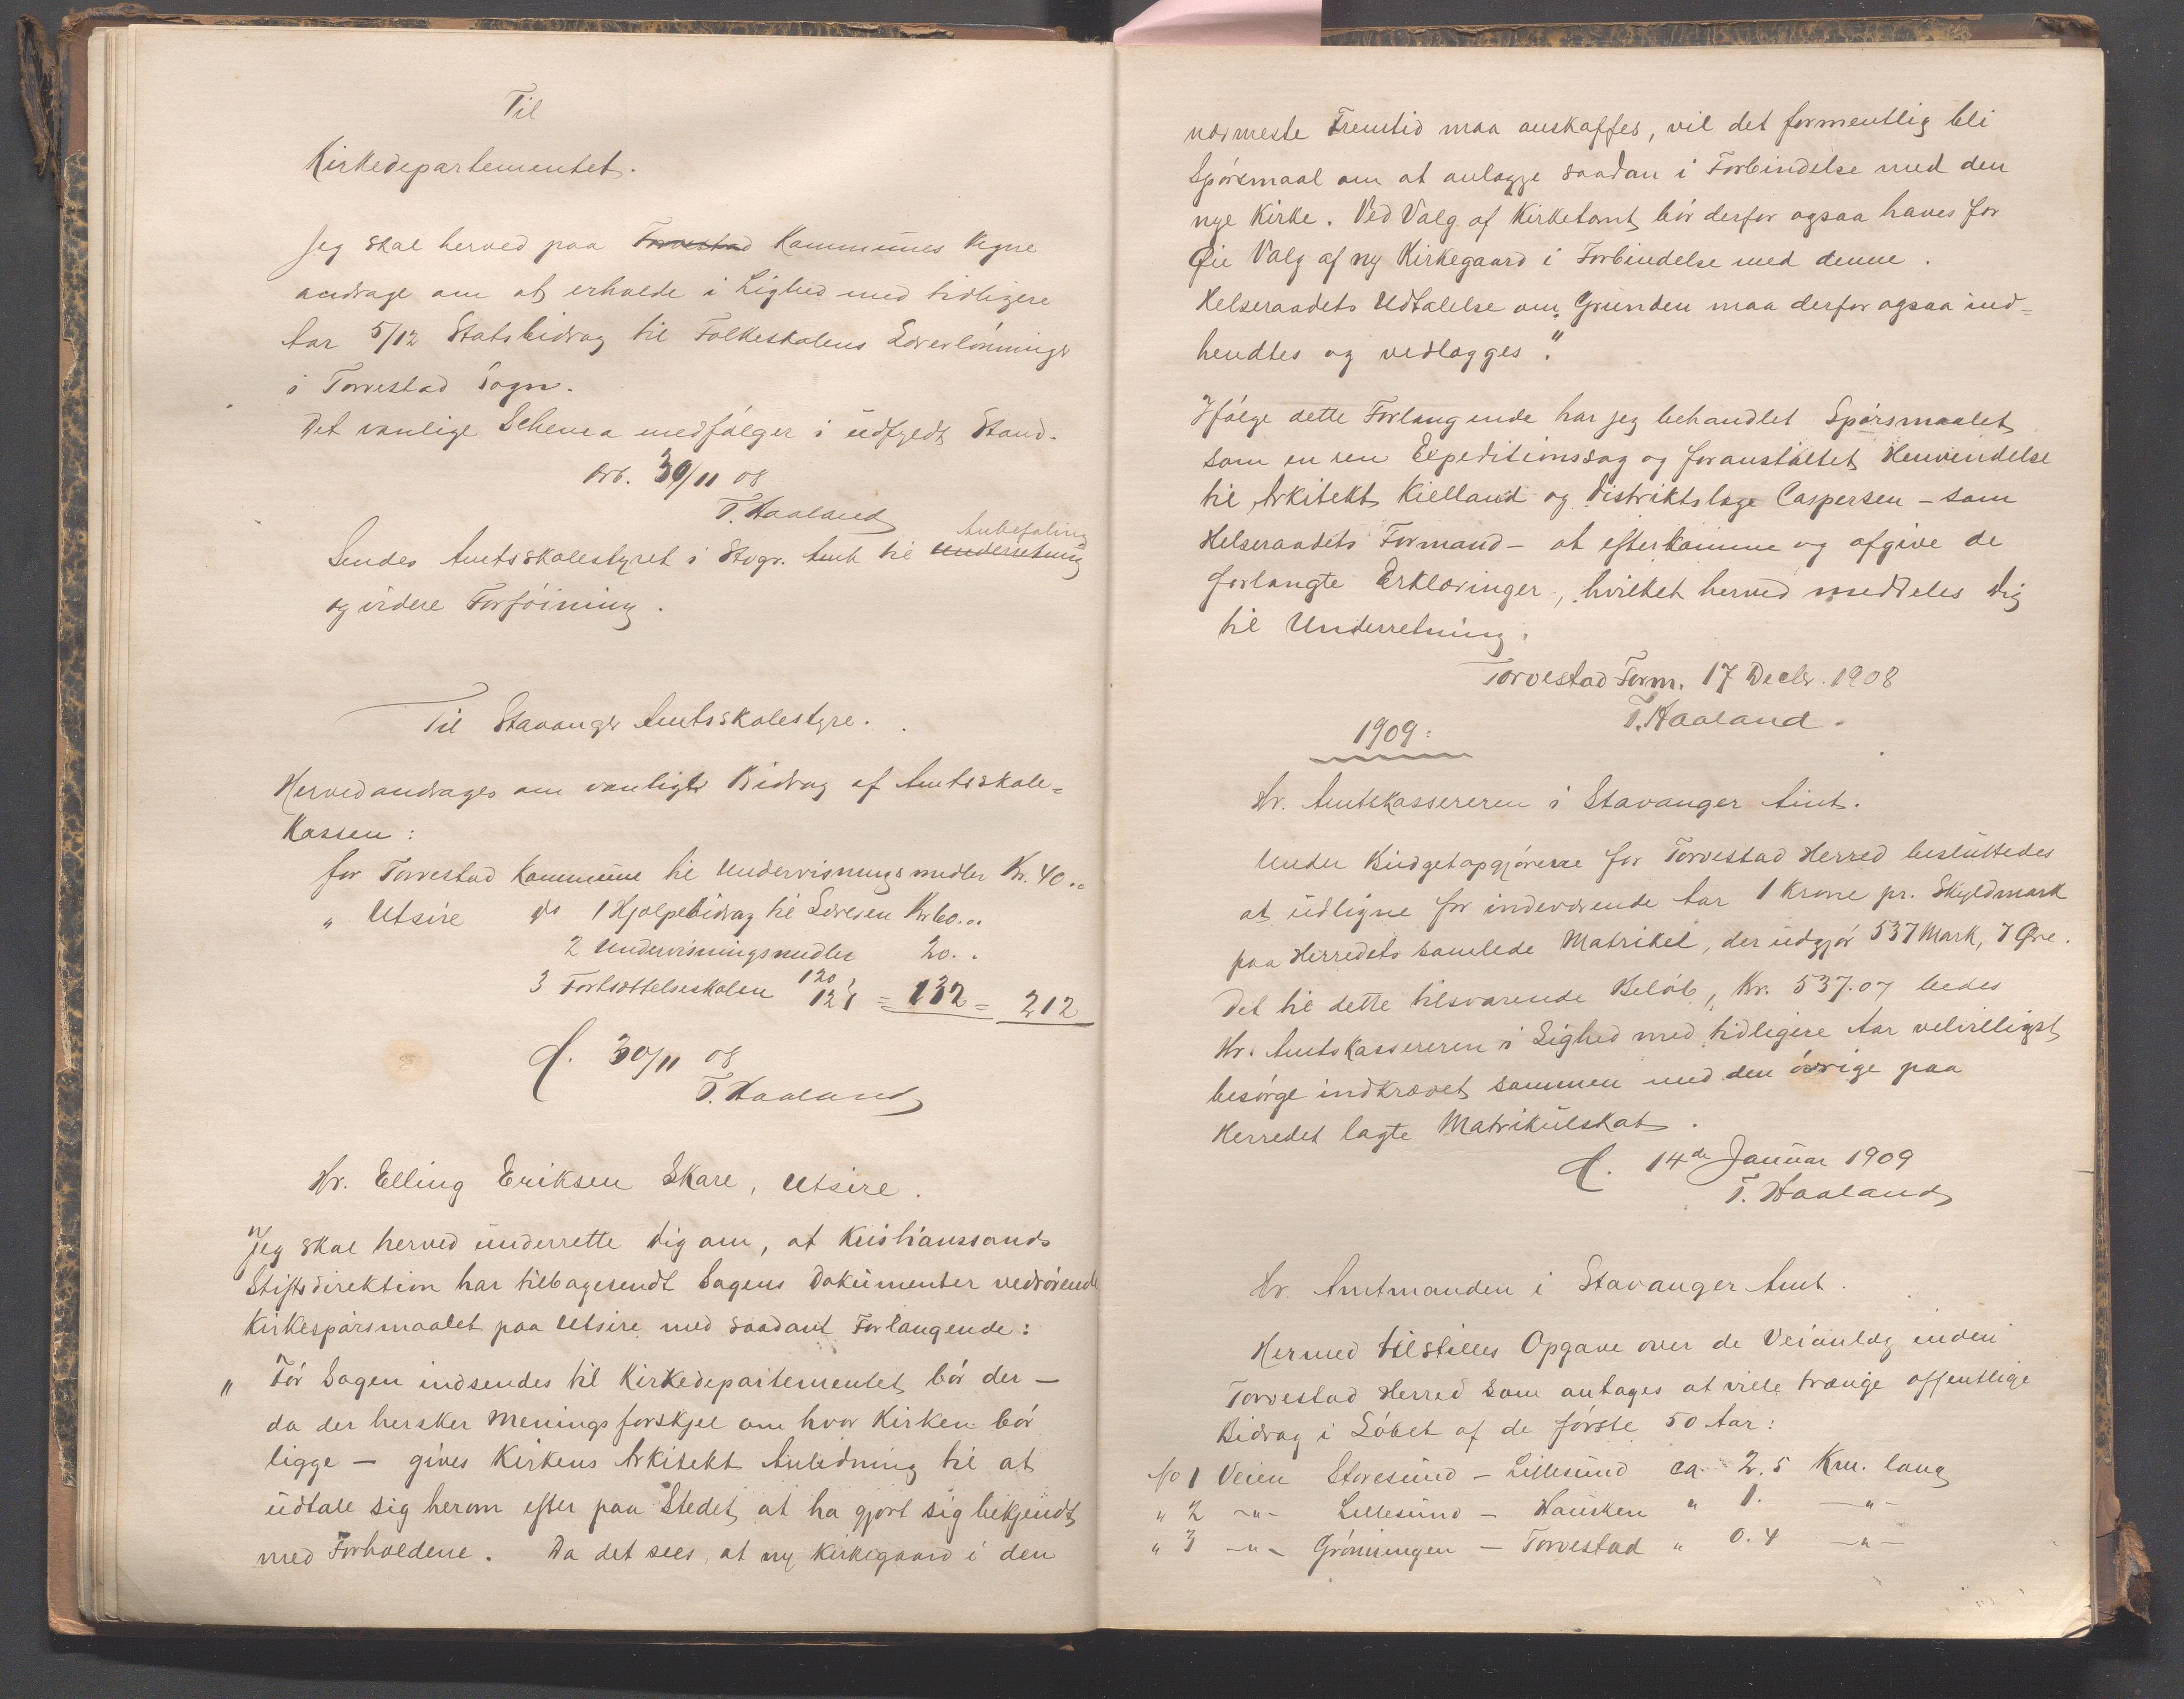 Til
Kirkedepartementet.
Jeg skal herved paa Torvestad Kommunes Vegne
andrage om at erholde i Lighed med tidligere
Aar 5/12 Statsbidrag til Folkeskolens Lærerlønninger
i Torvestad Sogn.
Det vanlige Schema medfølger i udfyldt Stand.
30/11 08
T. Haaland
Anbefaling
Sendes Amtsskolestyret i Stvgr. Amt til Underretning
og videre Forføining.
Til Stavanger Amtsskolestyre.
Herved andrages om vanligt Bidrag af Amtsskole=
kassen:
for Torvestad Kommune til Undervisningsmidler Kr. 40..
„ Utsire do 1 Hjælpebidrag til Læreren Kr 60...
2 Undervisningsmidler 20..
3 Fortsættelseskolen 120
12 = 132 = 212
d. 30/11 08
T. Haaland
Hr. Elling Eriksen Skare, Utsire.
Jeg skal herved underrette dig om, at Kristianssands
Stiftsdirektion har tilbagesendt Sagens Dokumenter vedrørende
Kirkespørsmaalet paa Utsire med saadant Forlangende:
„ Før Sagen indsendes til Kirkedepartementet bør der —
da der hersker Meningsforskjel om hvor Kirken bør
ligge — gives Kirkens Arkitekt Anledning til at
udtale sig herom efter paa Stedet at ha gjort sig bekjendt
med Forholdene. Da det sees at ny Kirkegaard i den
nærmeste Fremtid maa anskaffes, vil det formentlig bli
Spørsmaal om at anlægge saadan i Forbindelse med den
nye Kirke. Ved Valg af Kirketomt bør derfor ogsaa haves for
Øie Valg af ny Kirkegaard i Forbindelse med denne.
Helseraadets Udtalelse om Grunden maa derfor ogsaa ind=
hendtes og vedlægges."
Ifølge dette Forlangende har jeg behandlet Spørsmaalet
som en ren Expeditionssag og foranstaltet Henvendelse
til Arkitekt Kielland og Distriktslæge Caspersen — som
Helseraadets Formand — at efterkomme og afgive de
forlangte Erklæringer, hvilket herved meddeles dig
til Underretning.
Torvestad Form. 17 Decbr. 1908
T. Haaland.
1909:
Hr. Amtskassereren i Stavanger Amt.
Under Budgetopgjørerne for Torvestad Herred besluttedes
at udligne for indeværende Aar 1 Krone pr. Skyldmark
paa Herredets samlede Matrikel, der udgjør 537 Mark, 7 Øre.
Det til dette tilsvarende Beløb, Kr. 537.07 bedes
Hr. Amtskassereren i Lighed med tidligere Aar velvilligst
besørge indkrævet sammen med den øvrige paa
Herredet lagte Matrikulskat.
d. 14de Januar 1909
T. Haaland
Hr. Amtmanden i Stavanger Amt.
Hermed tilstilles Opgave over de Veianlæg inden
Torvestad Herred som antages at ville trænge offentlige
Bidrag i Løbet af de første 50 Aar:
No 1 Veien Storesund — Lillesund ca 2.5 Km. lang
„ 2 —„— Lillesund — Hausken „ 1. —„—
„ 3 —„— Grønningen — Torvestad „ 0.4 —„—